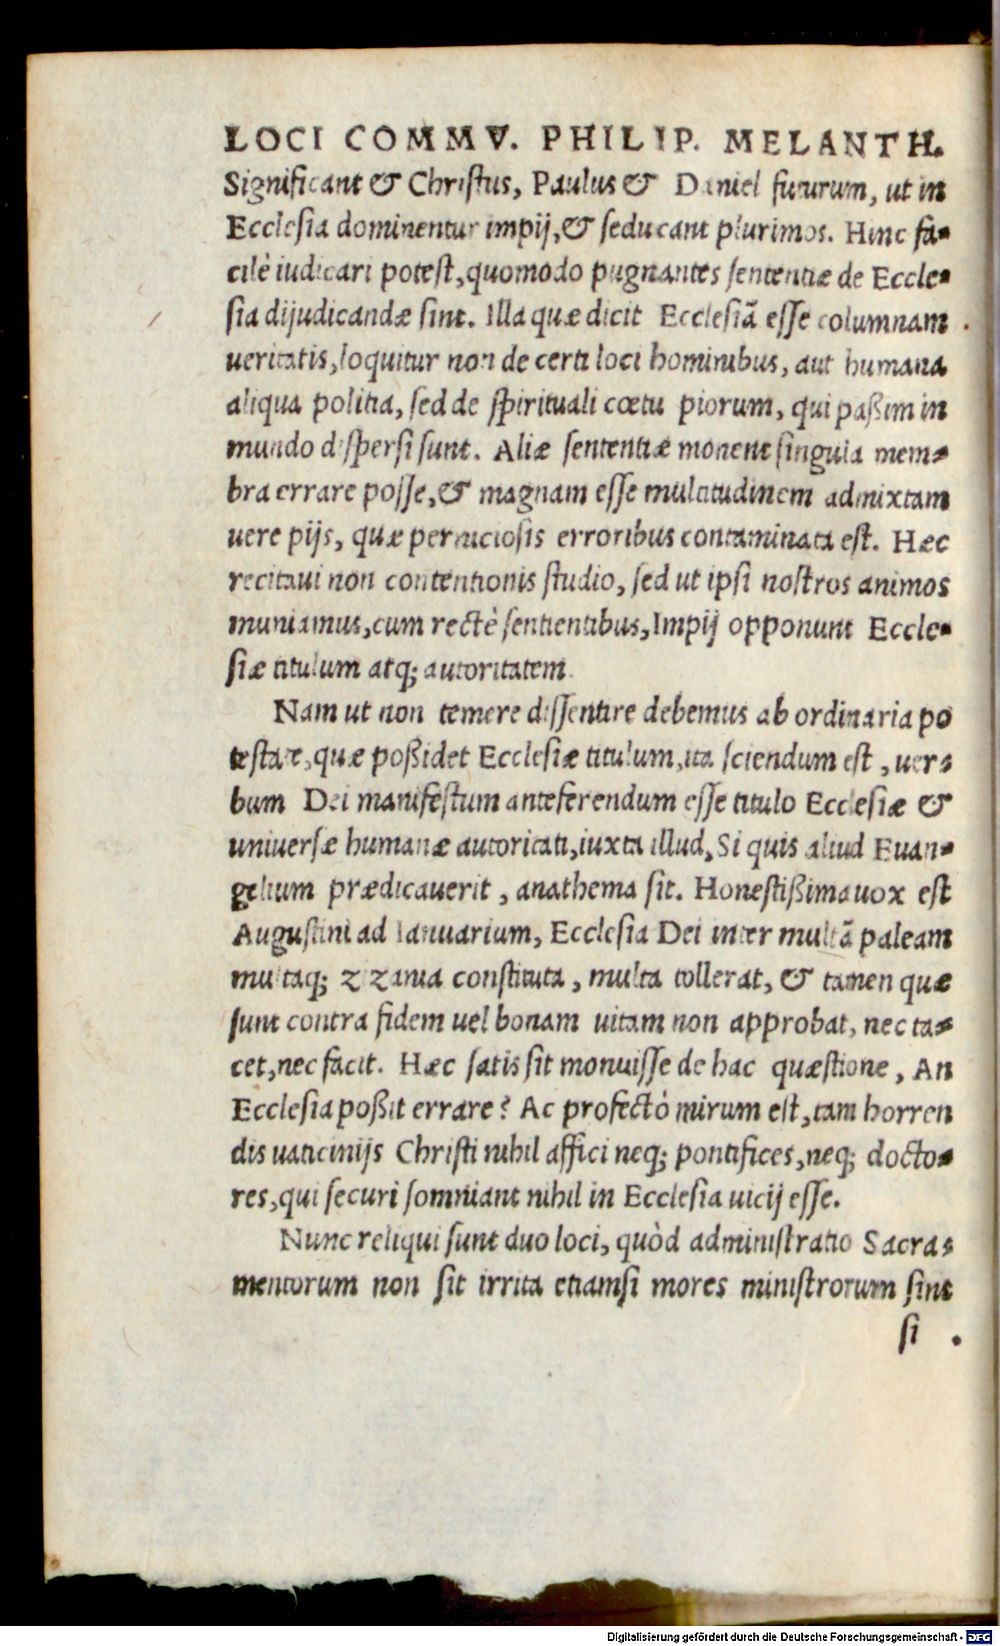 LOCI COMMV. PHILIP. MELANTH.
Significant & Christus, Paulus & Daniel futurum, ut in
Ecclesia dominentur impij, & seducant plurimos. Hinc fa-
cilè iudicari potest, quomodo pugnantes sententiæ de Eccle-
sia dijudicandæ sint. Illa quæ dicit Ecclesiã esse columnam
ueritatis, loquitur non de certi loci hominibus, aut humana
aliqua politia, sed de spirituali cœtu piorum, qui paßim in
mundo dispersi sunt. Aliæ sententiæ monent singula mem-
bra errare posse, & magnam esse multitudinem admixtam
uere pijs, quæ perniciosis erroribus contaminata est. Hæc
recitaui non contentionis studio, sed ut ipsi nostros animos
muniamus, cum rectè sentientibus, Impij opponunt Eccle-
siæ titulum atq; autoritatem.
Nam ut non temere dissentire debemus ab ordinaria po
testate, quæ poßidet Ecclesiæ titulum, ita sciendum est, uer-
bum Dei manifestum anteferendum esse titulo Ecclesiæ &
uniuersæ humanæ autoritati, iuxta illud, Si quis aliud Euan-
gelium prædicauerit, anathema sit. Honestißima uox est
Augustini ad Ianuarium, Ecclesia Dei inter multã paleam
multaq; zizania constituta, multa tollerat, & tamen quæ
sunt contra fidem uel bonam uitam non approbat, nec ta-
cet, nec facit. Hæc satis sit monuisse de hac quæstione, An
Ecclesia poßit errare? Ac profectò mirum est, tam horren
dis uaticinijs Christi nihil affici neq; pontifices, neq; docto-
res, qui securi somniant nihil in Ecclesia uicij esse.
Nunc reliqui sunt duo loci, quòd administratio Sacra-
mentorum non sit irrita etiamsi mores ministrorum sint
si
Digitalisierung gefördert durch die Deutsche Forschungsgemeinschaft - DFG